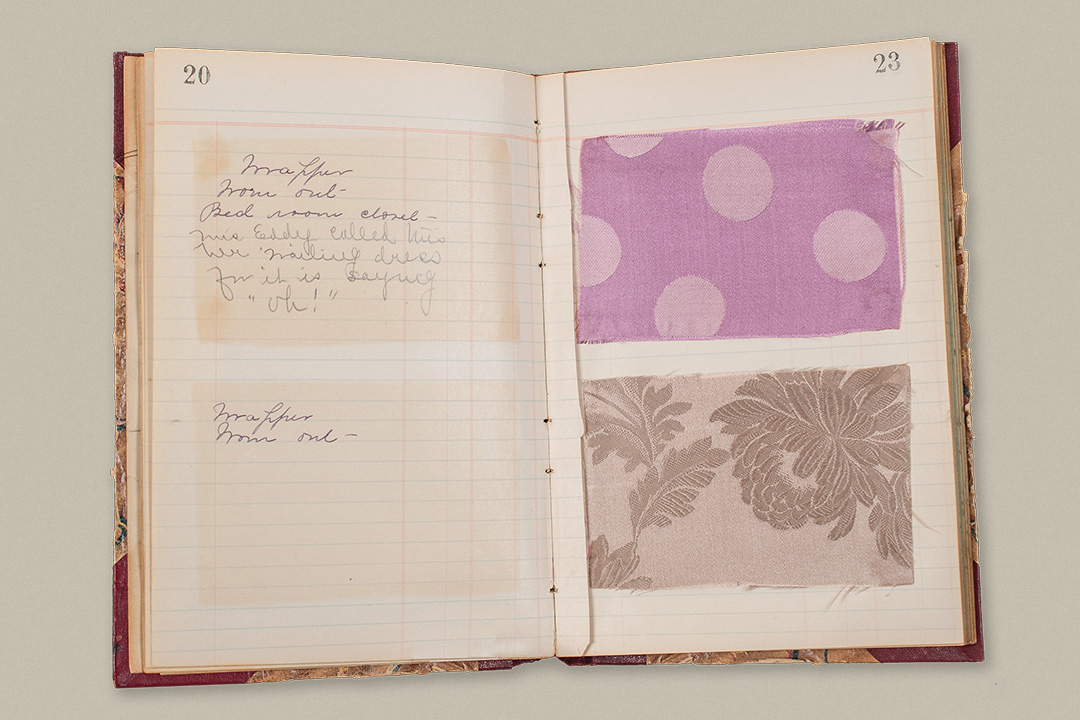 20
Wrapper
Worn out –
Bed room closet –
Mrs Eddy called this
her wailing dress
for it is saying
"Oh!"
Wrapper
Worn out –
23